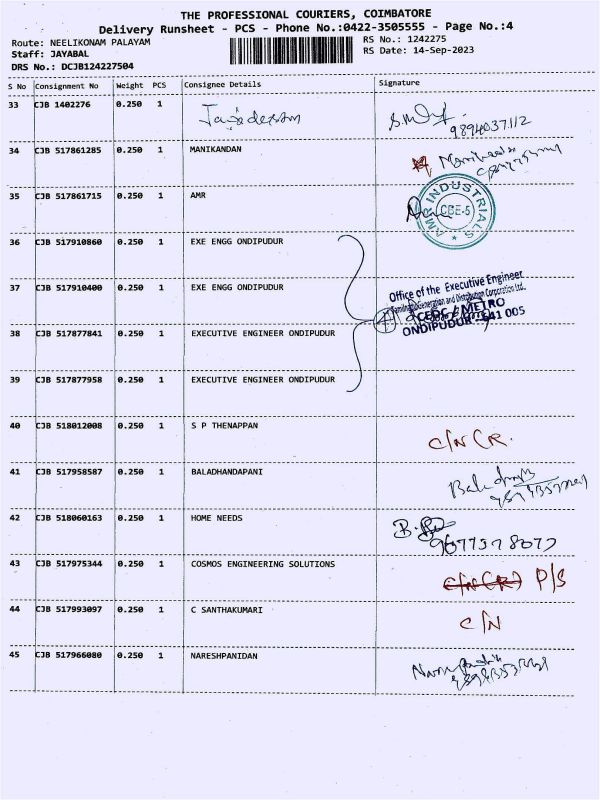 THE PROFESSIONAL COURIERS, COIMBATORE
Delivery Runsheet - PCS - Phone No.:0422-3505555 - Page No.:4
Route: NEELIKONAM PALAYAM
RS No.: 1242275
Staff: JAYABAL
RS Date: 14-Sep-2023
DRS No.: DCJB124227504
S No Consignment No Weight PCS Consignee Details Signature
33 CJB 1402276 0.250 1
9894037112
34 CJB 517861285 0.250 1 MANIKANDAN
35 CJB 517861715 0.250 1 AMR
AMR INDUSTRIALS
CBE-5
36 CJB 517910860 0.250 1 EXE ENGG ONDIPUDUR
37 CJB 517910400 0.250 1 EXE ENGG ONDIPUDUR
Office of the Executive Engineer
Tamilnadu Generation and Distribution Corporation Ltd.,
CEDC / METRO
ONDIPUDUR - 641 005
4
38 CJB 517877841 0.250 1 EXECUTIVE ENGINEER ONDIPUDUR
39 CJB 517877958 0.250 1 EXECUTIVE ENGINEER ONDIPUDUR
40 CJB 518012008 0.250 1 S P THENAPPAN
C/N CR.
41 CJB 517958587 0.250 1 BALADHANDAPANI
42 CJB 518060163 0.250 1 HOME NEEDS
B.
43 CJB 517975344 0.250 1 COSMOS ENGINEERING SOLUTIONS
P/S
44 CJB 517993097 0.250 1 C SANTHAKUMARI
C/N
45 CJB 517966080 0.250 1 NARESHPANIDAN